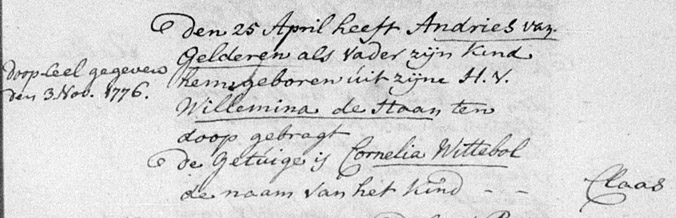 Den 25 April heeft Andries van
Gelderen als vader zijn kind
hem geboren uit zijne H. V.
Willemina de Haan ten
doop gebragt
de Getuige is Cornelia Wittebol
de naam van het kind - - Claas
doop-ceel gegeven
den 3 Nov. 1776.